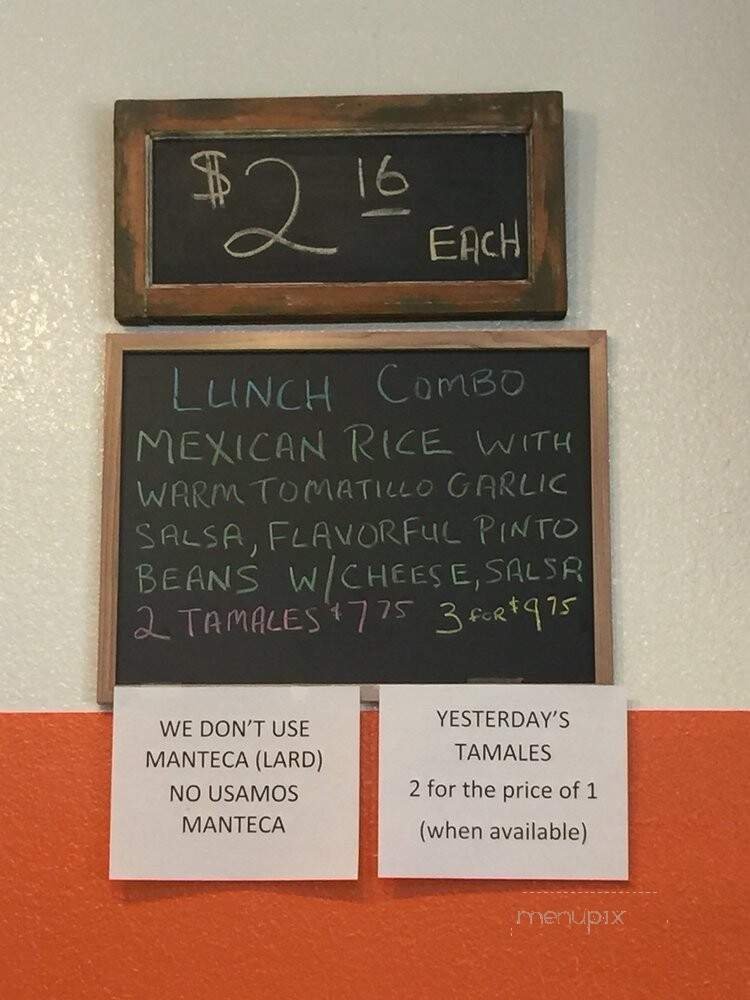 $2 16
EACH
LUNCH COMBO
MEXICAN RICE WITH
WARM TOMATILLO GARLIC
SALSA, FLAVORFUL PINTO
BEANS W/CHEESE, SALSA
2 TAMALES $7 75 3 FOR $9 75
WE DON'T USE
MANTECA (LARD)
NO USAMOS
MANTECA
YESTERDAY'S
TAMALES
2 for the price of 1
(when available)
menupix